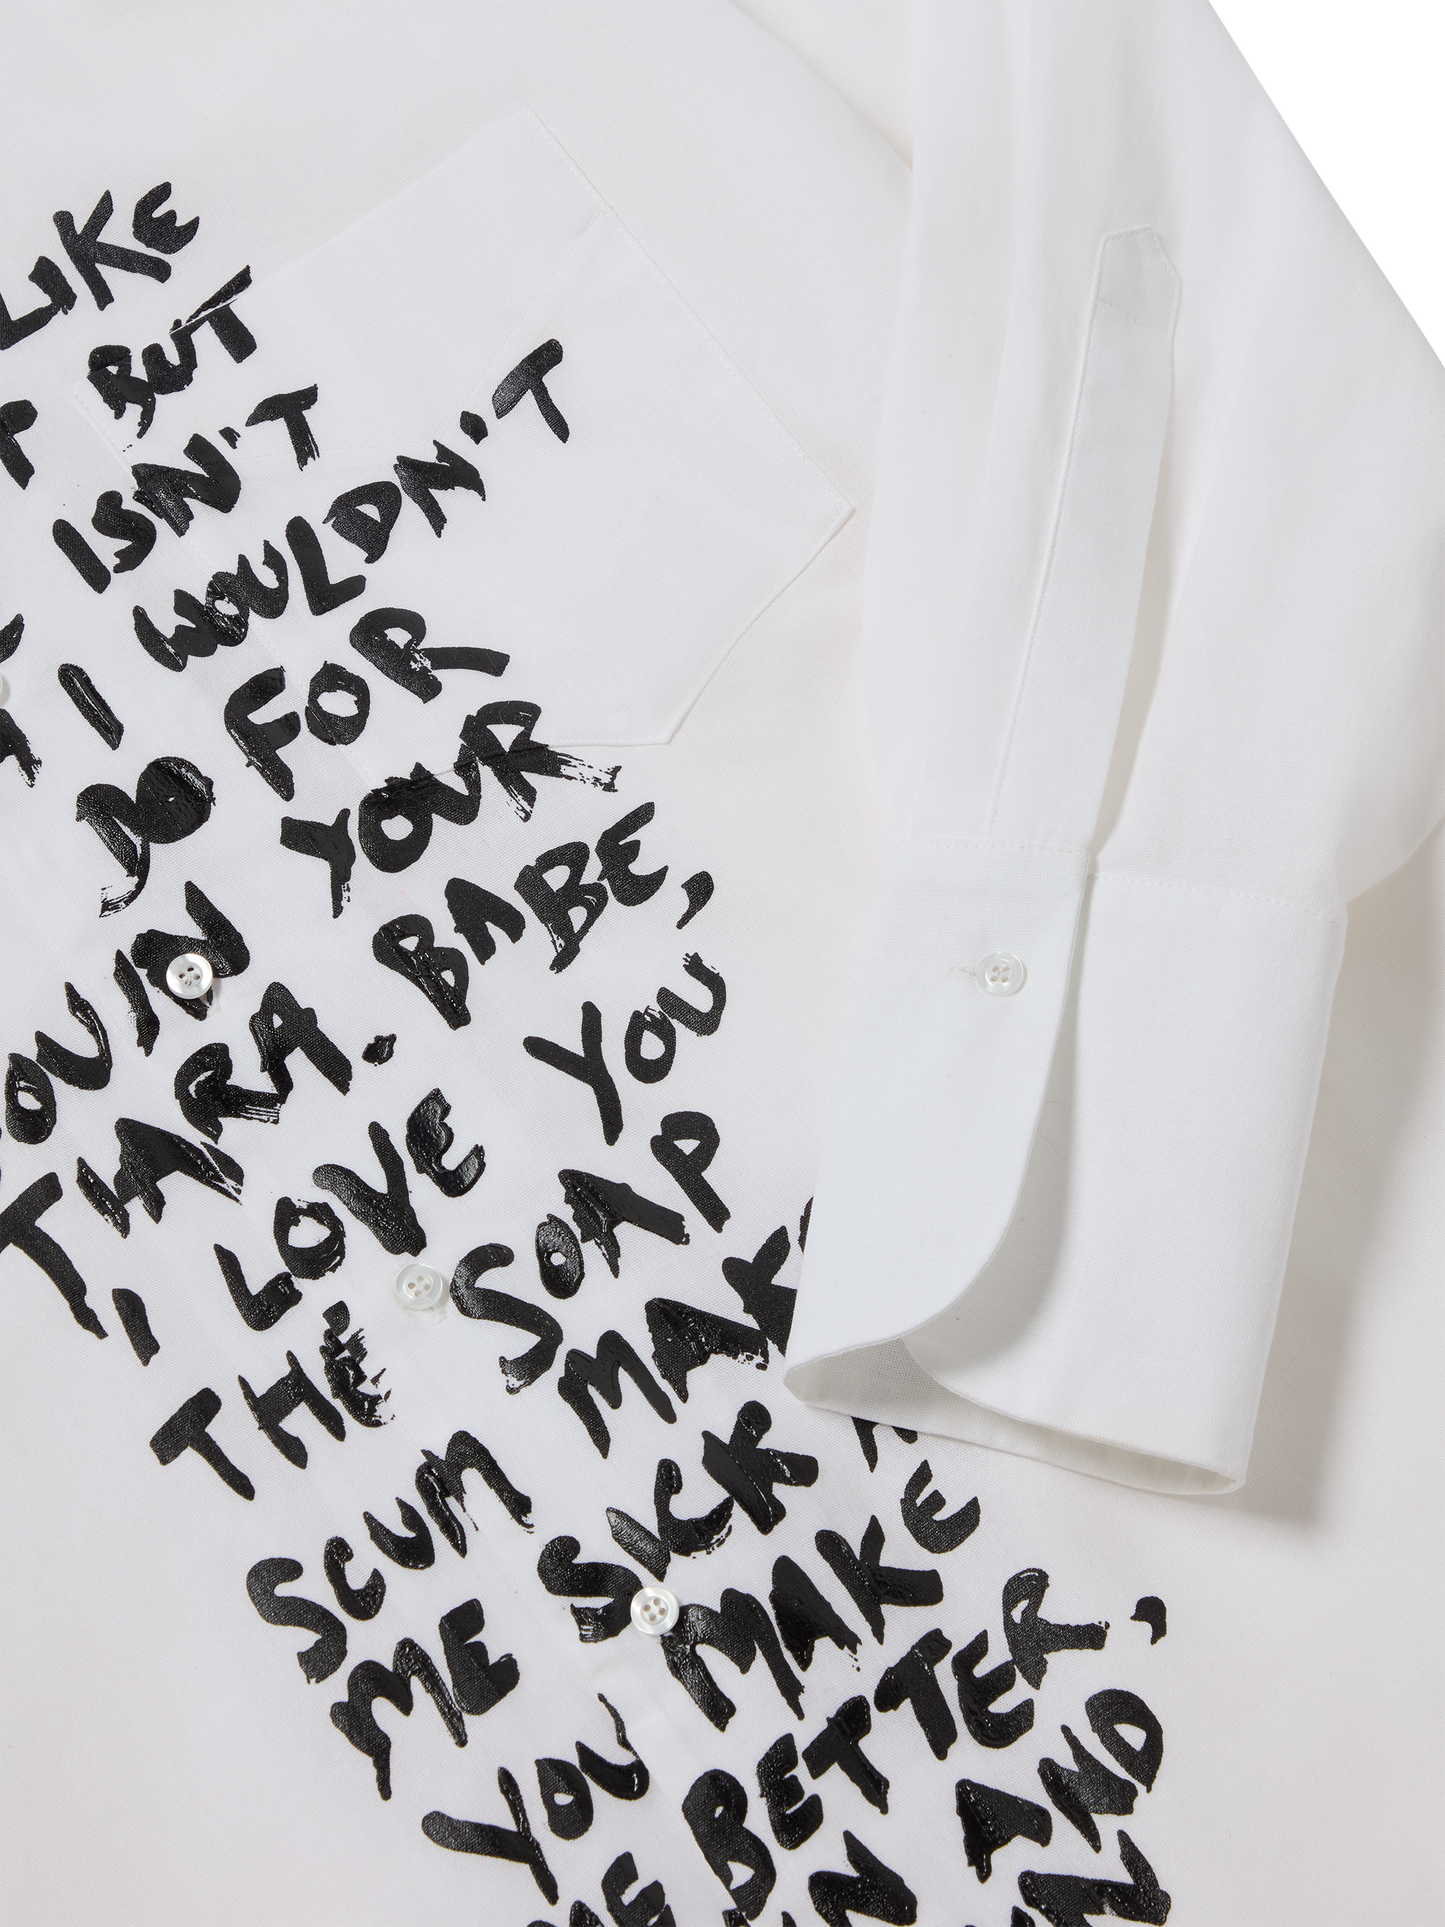 LIKE
BUT
ISN'T
I WOULDN'T
DO FOR
YOU IN YOUR
THARA. BABE,
I LOVE YOU
THE SOAP
SCUM MAK
ME SICK
YOU MAKE
ME BETTER,
AND